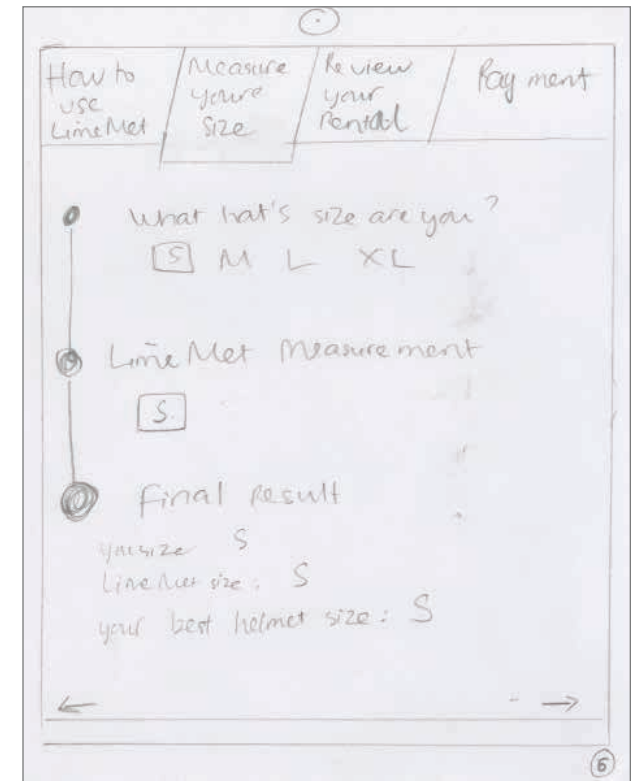 How to
use
LimeMet
Measure
youre
Size
Review
your
Rental
Payment
What hat's size are you?
S M L XL
LimeMet Measurement
S
Final Result
size S
LimeMet size: S
your best helmet size: S
6